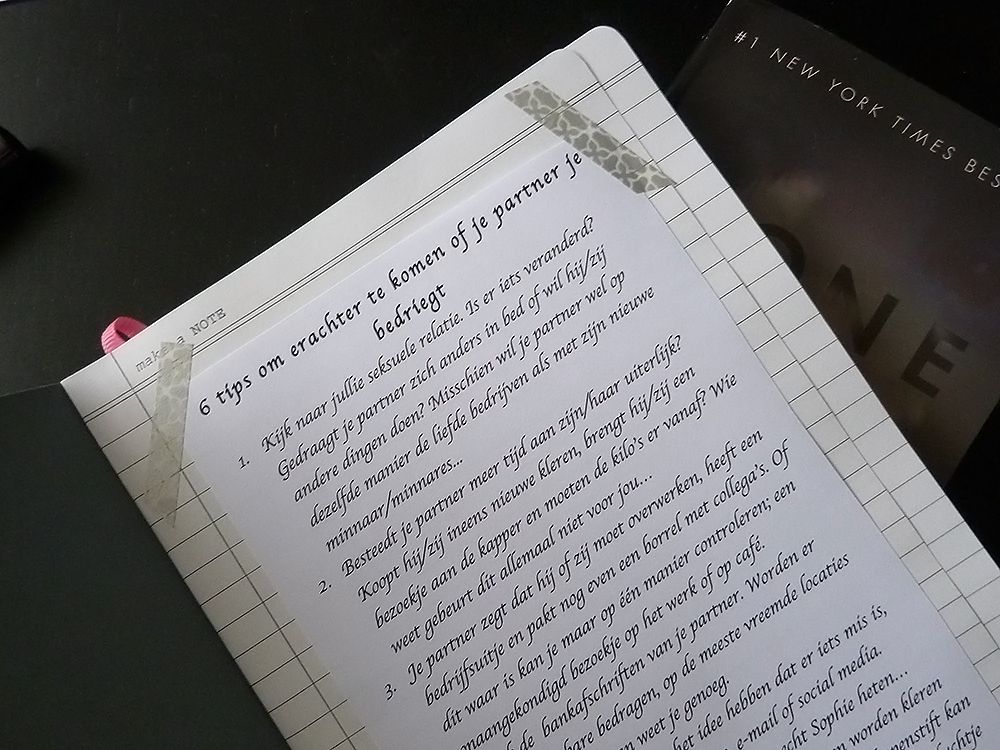 #1 NEW YORK TIMES BES
ONE
make a NOTE
6 tips om erachter te komen of je partner je
bedriegt
1. Kijk naar jullie seksuele relatie. Is er iets veranderd?
Gedraagt je partner zich anders in bed of wil hij/zij
andere dingen doen? Misschien wil je partner wel op
dezelfde manier de liefde bedrijven als met zijn nieuwe
minnaar/minnares...
2. Besteedt je partner meer tijd aan zijn/haar uiterlijk?
Koopt hij/zij ineens nieuwe kleren, brengt hij/zij een
bezoekje aan de kapper en moeten de kilo's er vanaf? Wie
weet gebeurt dit allemaal niet voor jou...
3. Je partner zegt dat hij of zij moet overwerken, heeft een
bedrijfsuitje en pakt nog even een borrel met collega's. Of
dit waar is kan je maar op één manier controleren; een
onaangekondigd bezoekje op het werk of op café.
de bankafschriften van je partner. Worden er
bare bedragen, op de meeste vreemde locaties
n weet je genoeg.
het idee hebben dat er iets mis is,
e-mail of social media.
echt Sophie heten...
n worden kleren
enstift kan
chtje